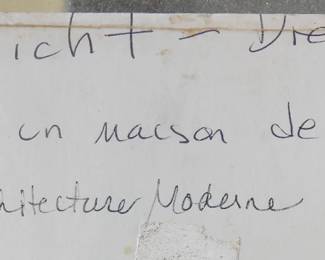 icht - Die
un maison de
hitecture Moderne